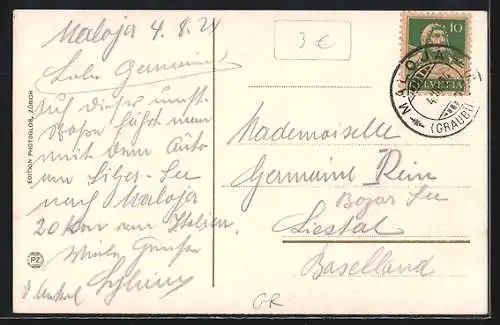 Maloja 4.8.24
Liebe Germaine
Auf dieser
fährt man
mit dem Auto
am Silser-See
nach Maloja
20 Km von Italien
Viele Grüsse
3 €
EDITION PHOTOGLOB, ZÜRICH
PZ
10
HELVETIA
MALOJA
(GRAUB)
Mademoiselle
Germaine Rein
Liestal
Baselland
GR